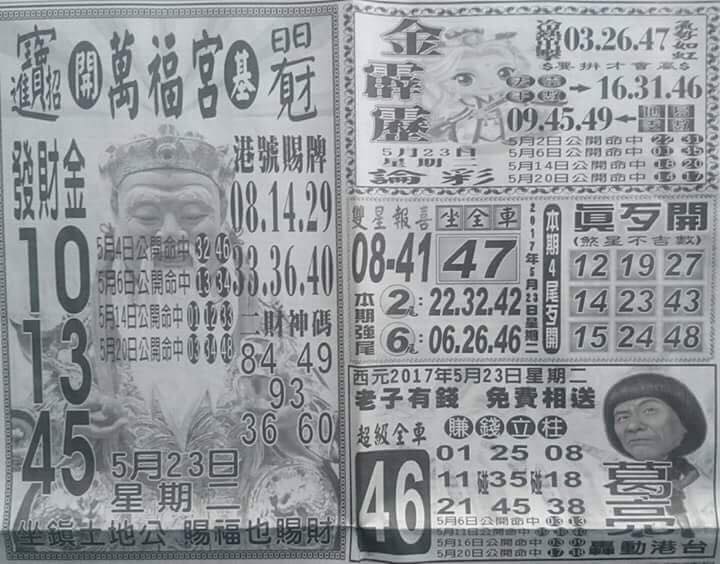 招寶進 開 萬福宮 基
發財金
10
13
45
港號賜牌
08.14.29
33.36.40
5月4日公開命中 32 46
5月6日公開命中 13 34
5月14日公開命中 01 12 33
5月20日公開命中 03 34 48
二財神碼
84 49
93
36 60
5月23日
星期二
坐鎮土地公 賜福也賜財
金霹靂
03.26.47
$要拼才會贏$
16.31.46
09.45.49
5月23日
星期二
論彩
5月2日公開命中 22 31
5月6日公開命中 01 35
5月14日公開命中 18 20
5月20日公開命中 14 17
雙星報喜 坐全車
08-41 47
本期強尾
2尾:22.32.42
6尾:06.26.46
2017年5月23日星期二
本期4尾歹開
眞歹開
(煞星不吉數)
12 19 27
14 23 43
15 24 48
西元2017年5月23日星期二
老子有錢 免費相送
超級全車
46
賺錢立柱
01 25 08
11 碰 35 碰 18
21 45 38
5月6日公開命中 03 13
5月11日公開命中
5月16日公開命中 03 09
5月20日公開命中 17 48
葛亮
轟動港台